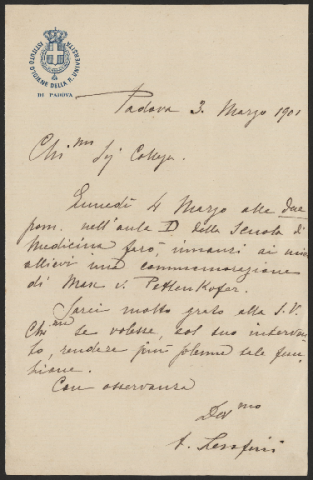 ISTITUTO D'IGIENE DELLA R. UNIVERSITÀ
DI PADOVA
Padova 3. Marzo 1901
Chi.mo Sig. Collega.
Lunedì 4 Marzo alle due
pom. nell'aula D. della Scuola di
Medicina farò, innanzi ai miei
allievi una commemorazione
di Max v. Pettenkofer.
Sarei molto grato alla S.V.
Chi.ma se volesse, col suo interven-
to, rendere più solenne tale fun-
zione.
Con osservanza
Dev.mo
A. Serafini